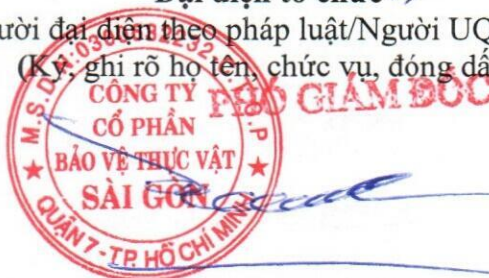 Đại diện tổ chức
ười đại diện theo pháp luật/Người UQ
(Ký, ghi rõ họ tên, chức vụ, đóng dấ
PHÓ GIÁM ĐỐC
CÔNG TY
CỔ PHẦN
BẢO VỆ THỰC VẬT
SÀI GÒN
QUẬN 7 - TP. HỒ CHÍ MINH